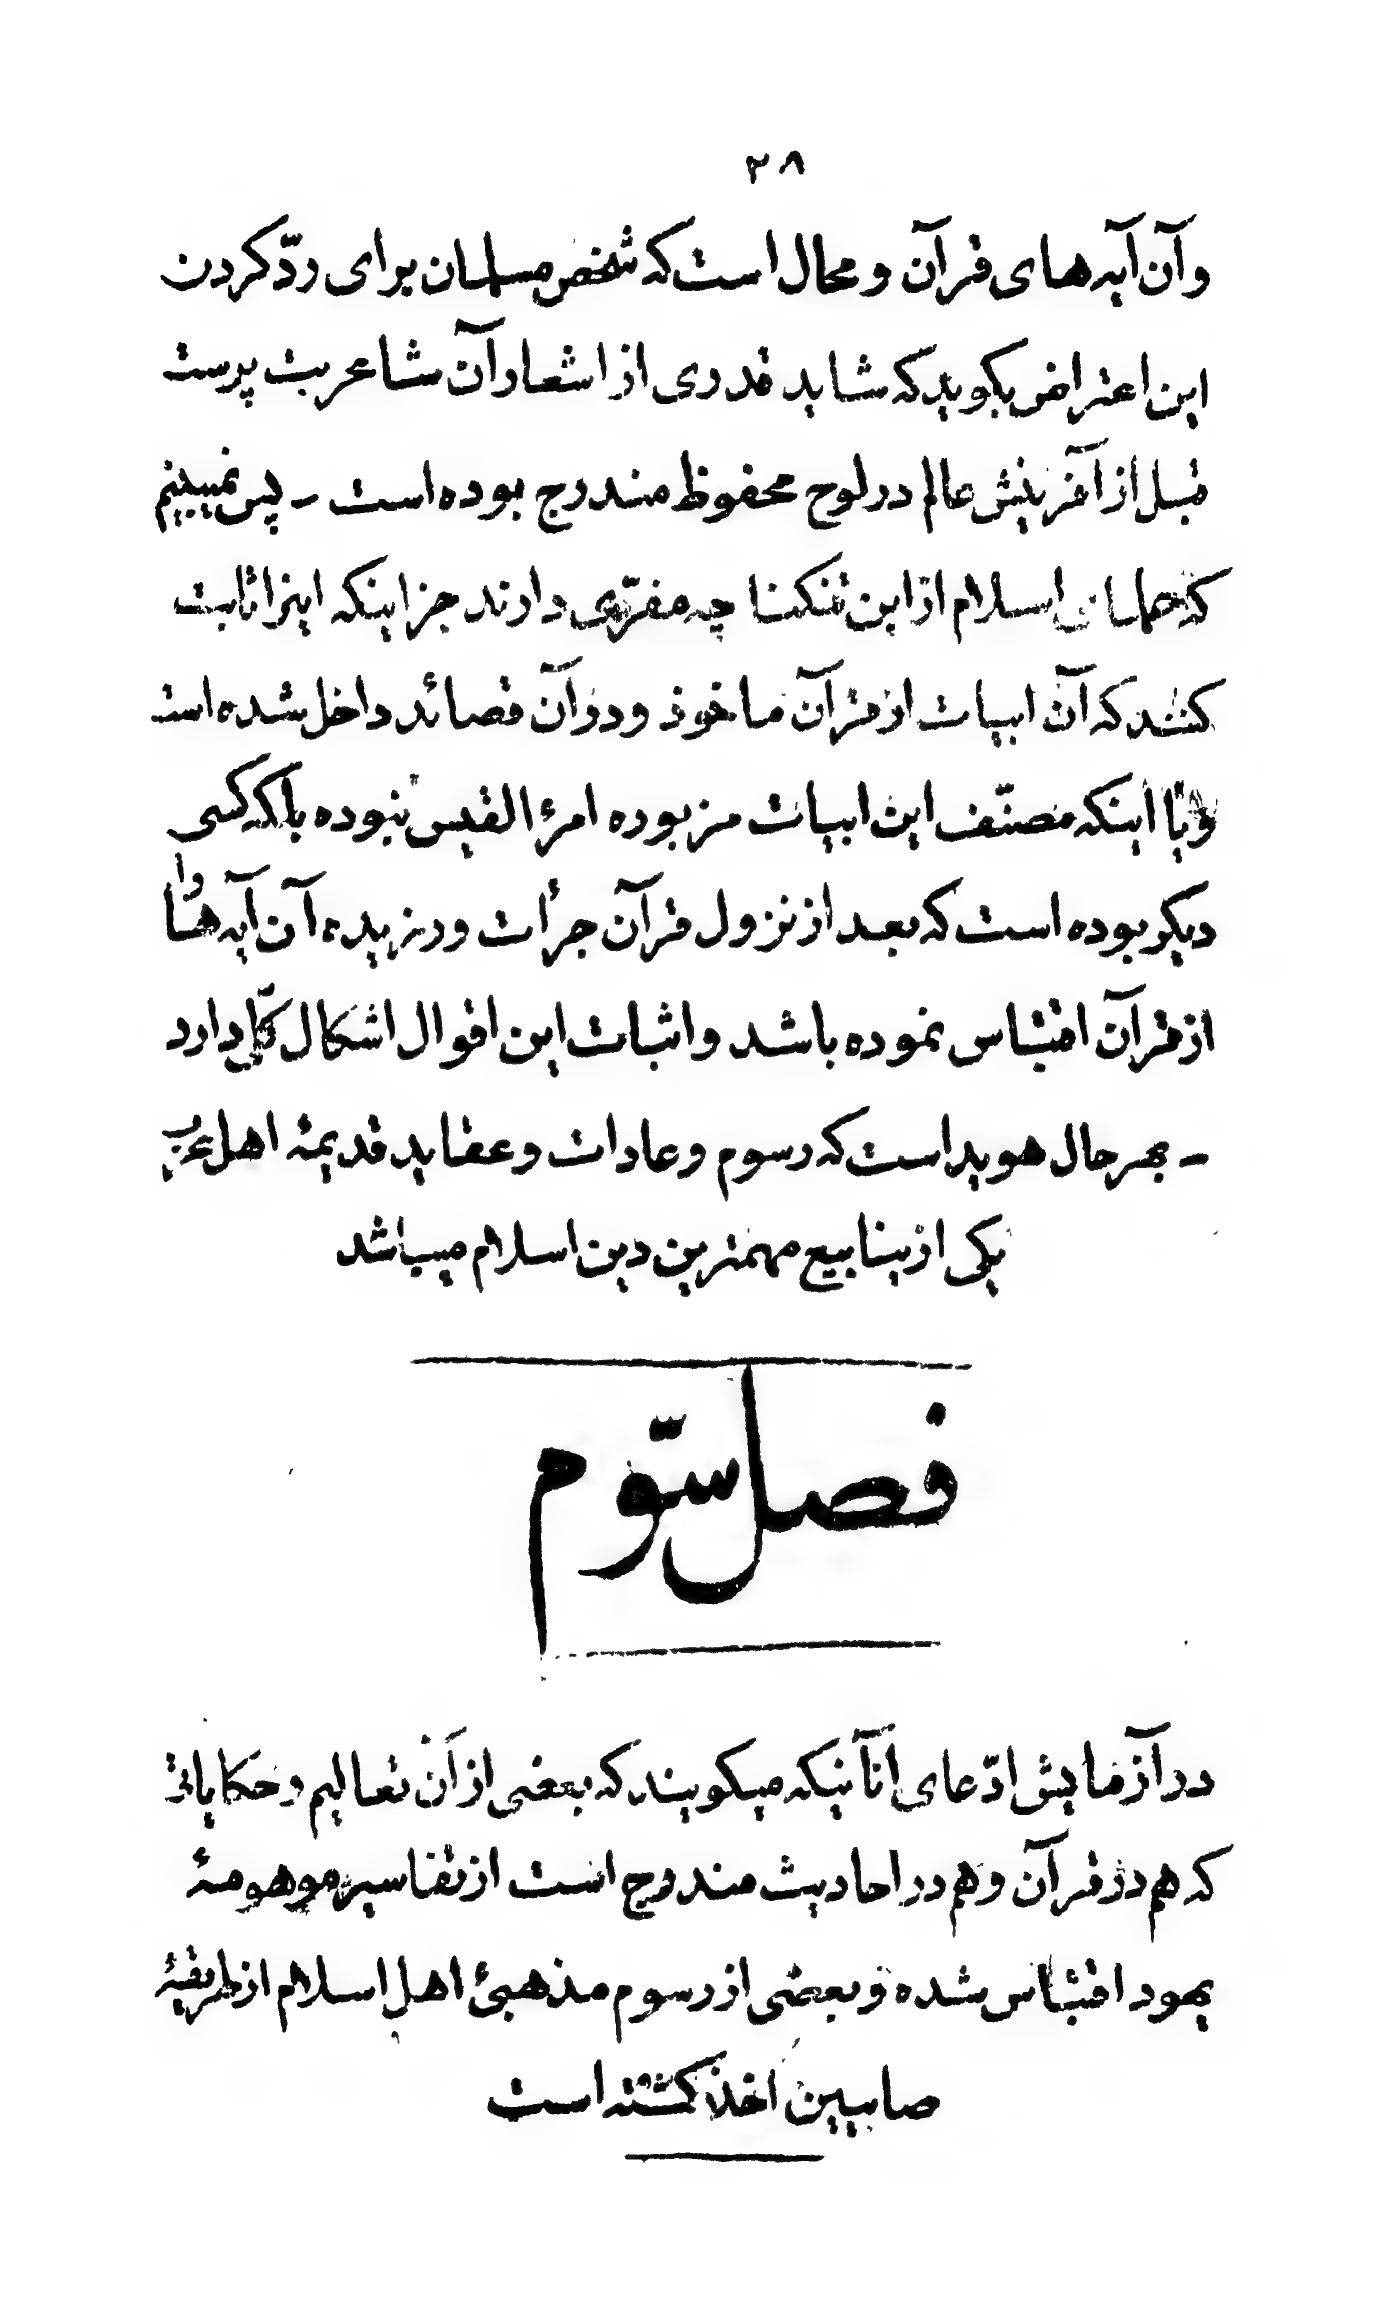 ۲۸
وآن آیه های قرآن و محال است که شخص مسلمان برای ردّ کردن
این اعتراض بگوید که شاید قدری از اشعار آن شاعر بت پرست
قبل از آفرینش عالم در لوح محفوظ مندرج بوده است - پس نمیبینم
که حامیان اسلام از این تنگنا چه مفرّی دارند جز اینکه اینرا ثابت
کنند که آن ابیات از قرآن ماخوذ و در آن قصائد داخل شده است
و یا اینکه مصنّف این ابیات مزبوره امرء القیس نبوده بلکه کسی
دیگر بوده است که بعد از نزول قرآن جرأت ورزیده آن آیه ها را
از قرآن اقتباس نموده باشد و اثبات این اقوال اشکال کلّی دارد
- بهر حال هویدا است که رسوم و عادات و عقاید قدیمهٔ اهل عرب
یکی از ینابیع مهمترین دین اسلام میباشد
فصل سّوم
در آزمایش ادّعای انآنیکه میگویند که بعضی از آن تعالیم و حکایاتی
که هم در قرآن و هم در احادیث مندرج است از تفاسیر موهومهٔ
یهود اقتباس شده و بعضی از رسوم مذهبئ اهل اسلام از طریقهٔ
صابیین اخذ گشته است